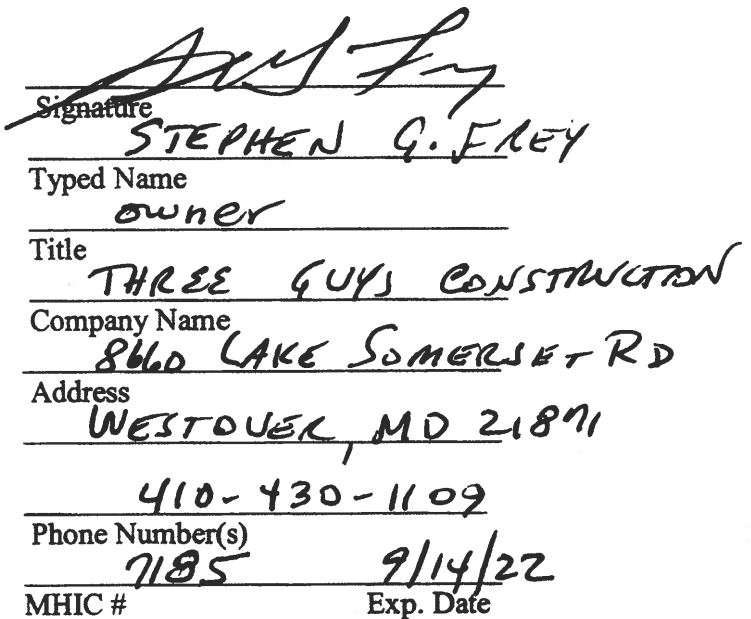 Signature
STEPHEN G. FREY
Typed Name
owner
Title
THREE GUYS CONSTRUCTION
Company Name
8660 LAKE SOMERSET RD
Address
WESTOVER, MD 21871
410-430-1109
Phone Number(s)
7185 9/14/22
MHIC # Exp. Date